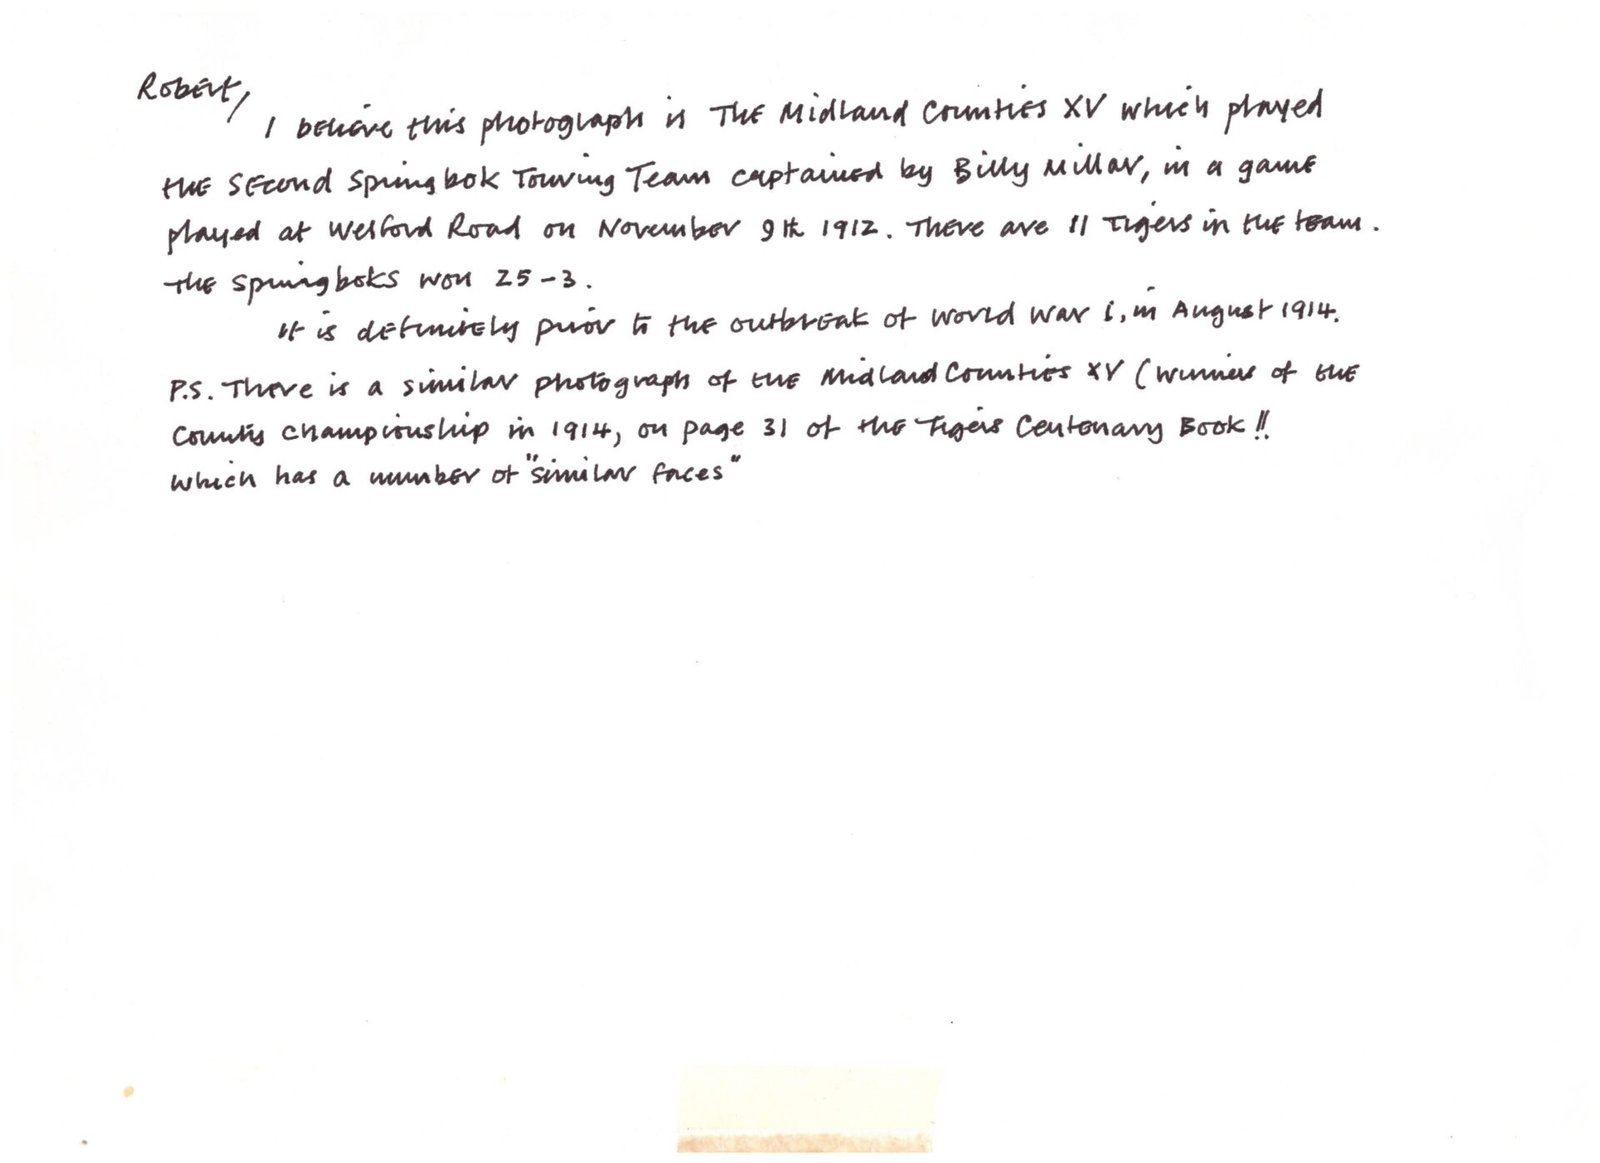 Robert,
I believe this photograph is The Midland Counties XV which played
the Second Springbok Touring Team captained by Billy Millar, in a game
played at Welford Road on November 9th 1912. There are 11 Tigers in the team.
The Springboks won 25-3.
It is definitely prior to the outbreak of World War 1, in August 1914.
P.S. There is a similar photograph of the Midland Counties XV (Winners of the
County Championship in 1914, on page 31 of the Tigers Centenary Book!!
which has a number of "similar faces"